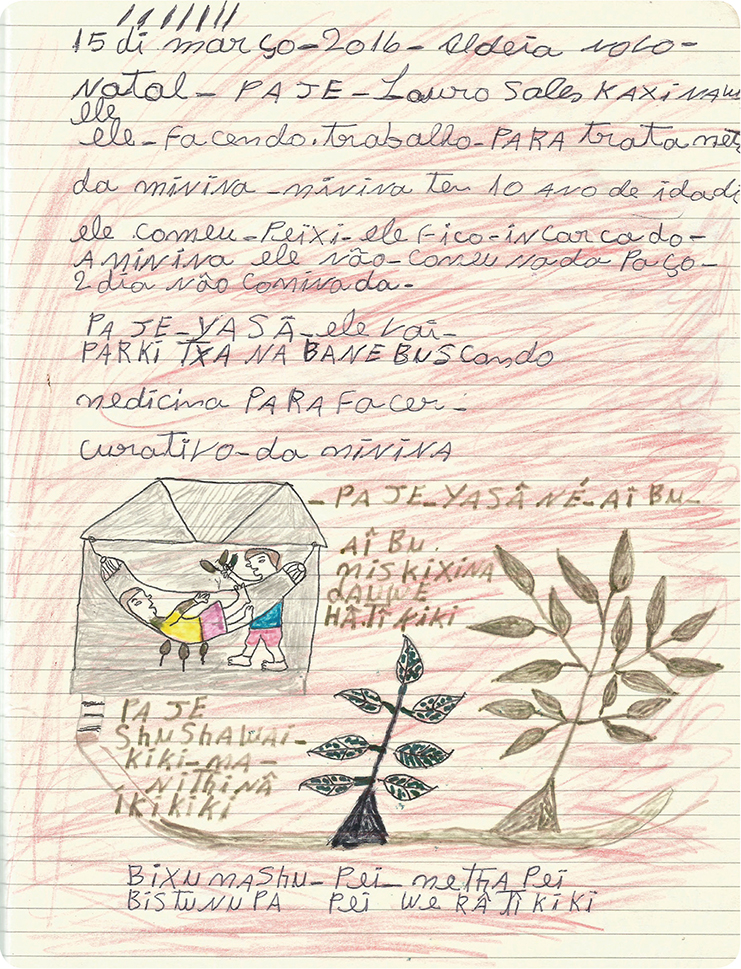 15 di março-2016- aldeia novo-
NATAL- PAJE- Lauro Sales KAXINAW
ele
ele-facendo.trabalho-PARA trata
da minina-minina ten 10 ANO de idadi
ele comeu-Peixi-ele fico-incarcado-
A MININA ele não-comeu nada Paço-
2 dia não cominada-
PAJE-YASÂ-ele vai-
PARKi TXANA BANE BUScando
medicina PARA Facer-
curativo-da MININA
-PAJE-YASÂNÉ-AÎBU-
AÎBU.
MISKIXINA
DAUWE
HÂTÎKIKI
PAJE
ShUShAWAI-
KIKI-MA-
NIThINÂ
ÍKIKIKI
BIXUMAShU-Pei-meThA Pei
BISTUNUPA Pei WE RÂTÎKIKI